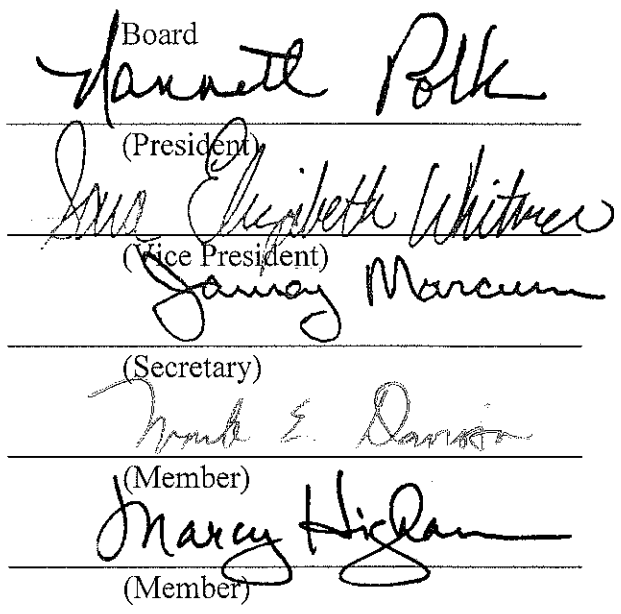 Board
Nannett Polk
(President)
Sara Elizabeth Whitmer
(Vice President)
Marcum
(Secretary)
Mark E. Davison
(Member)
Marcy Higham
(Member)